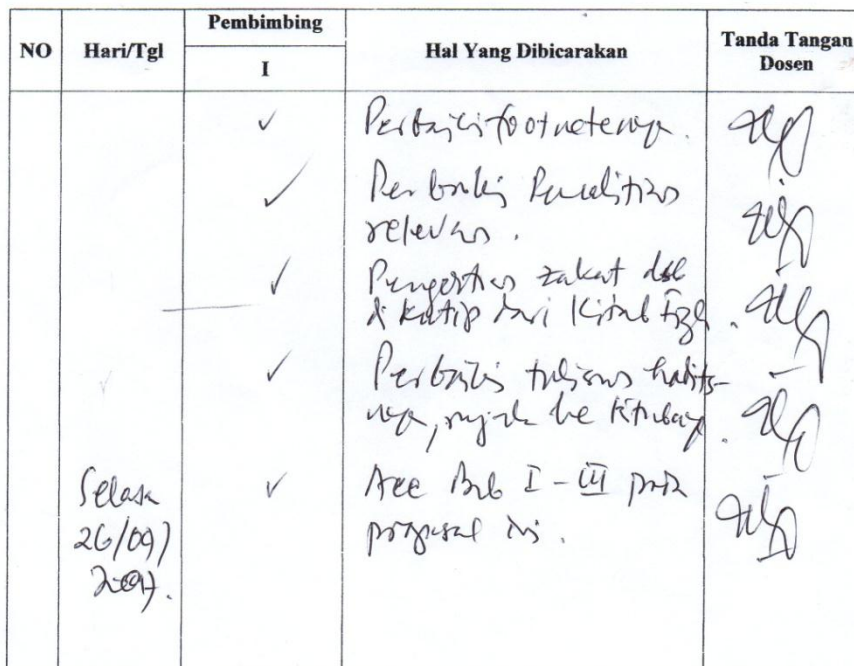 NO Hari/Tgl Pembimbing Hal Yang Dibicarakan Tanda Tangan
I Dosen
✓ Perbaiki footnotenya.
✓ Perbaiki Penelitian
relevan.
✓ Pengertian zakat dll
di kutip dari Kitab Fiqh.
✓ Perbaiki tulisan hadits-
nya, rujuk ke kitabnya.
Selasa ✓ Acc Bab I - III pada
26/09/ proposal ini.